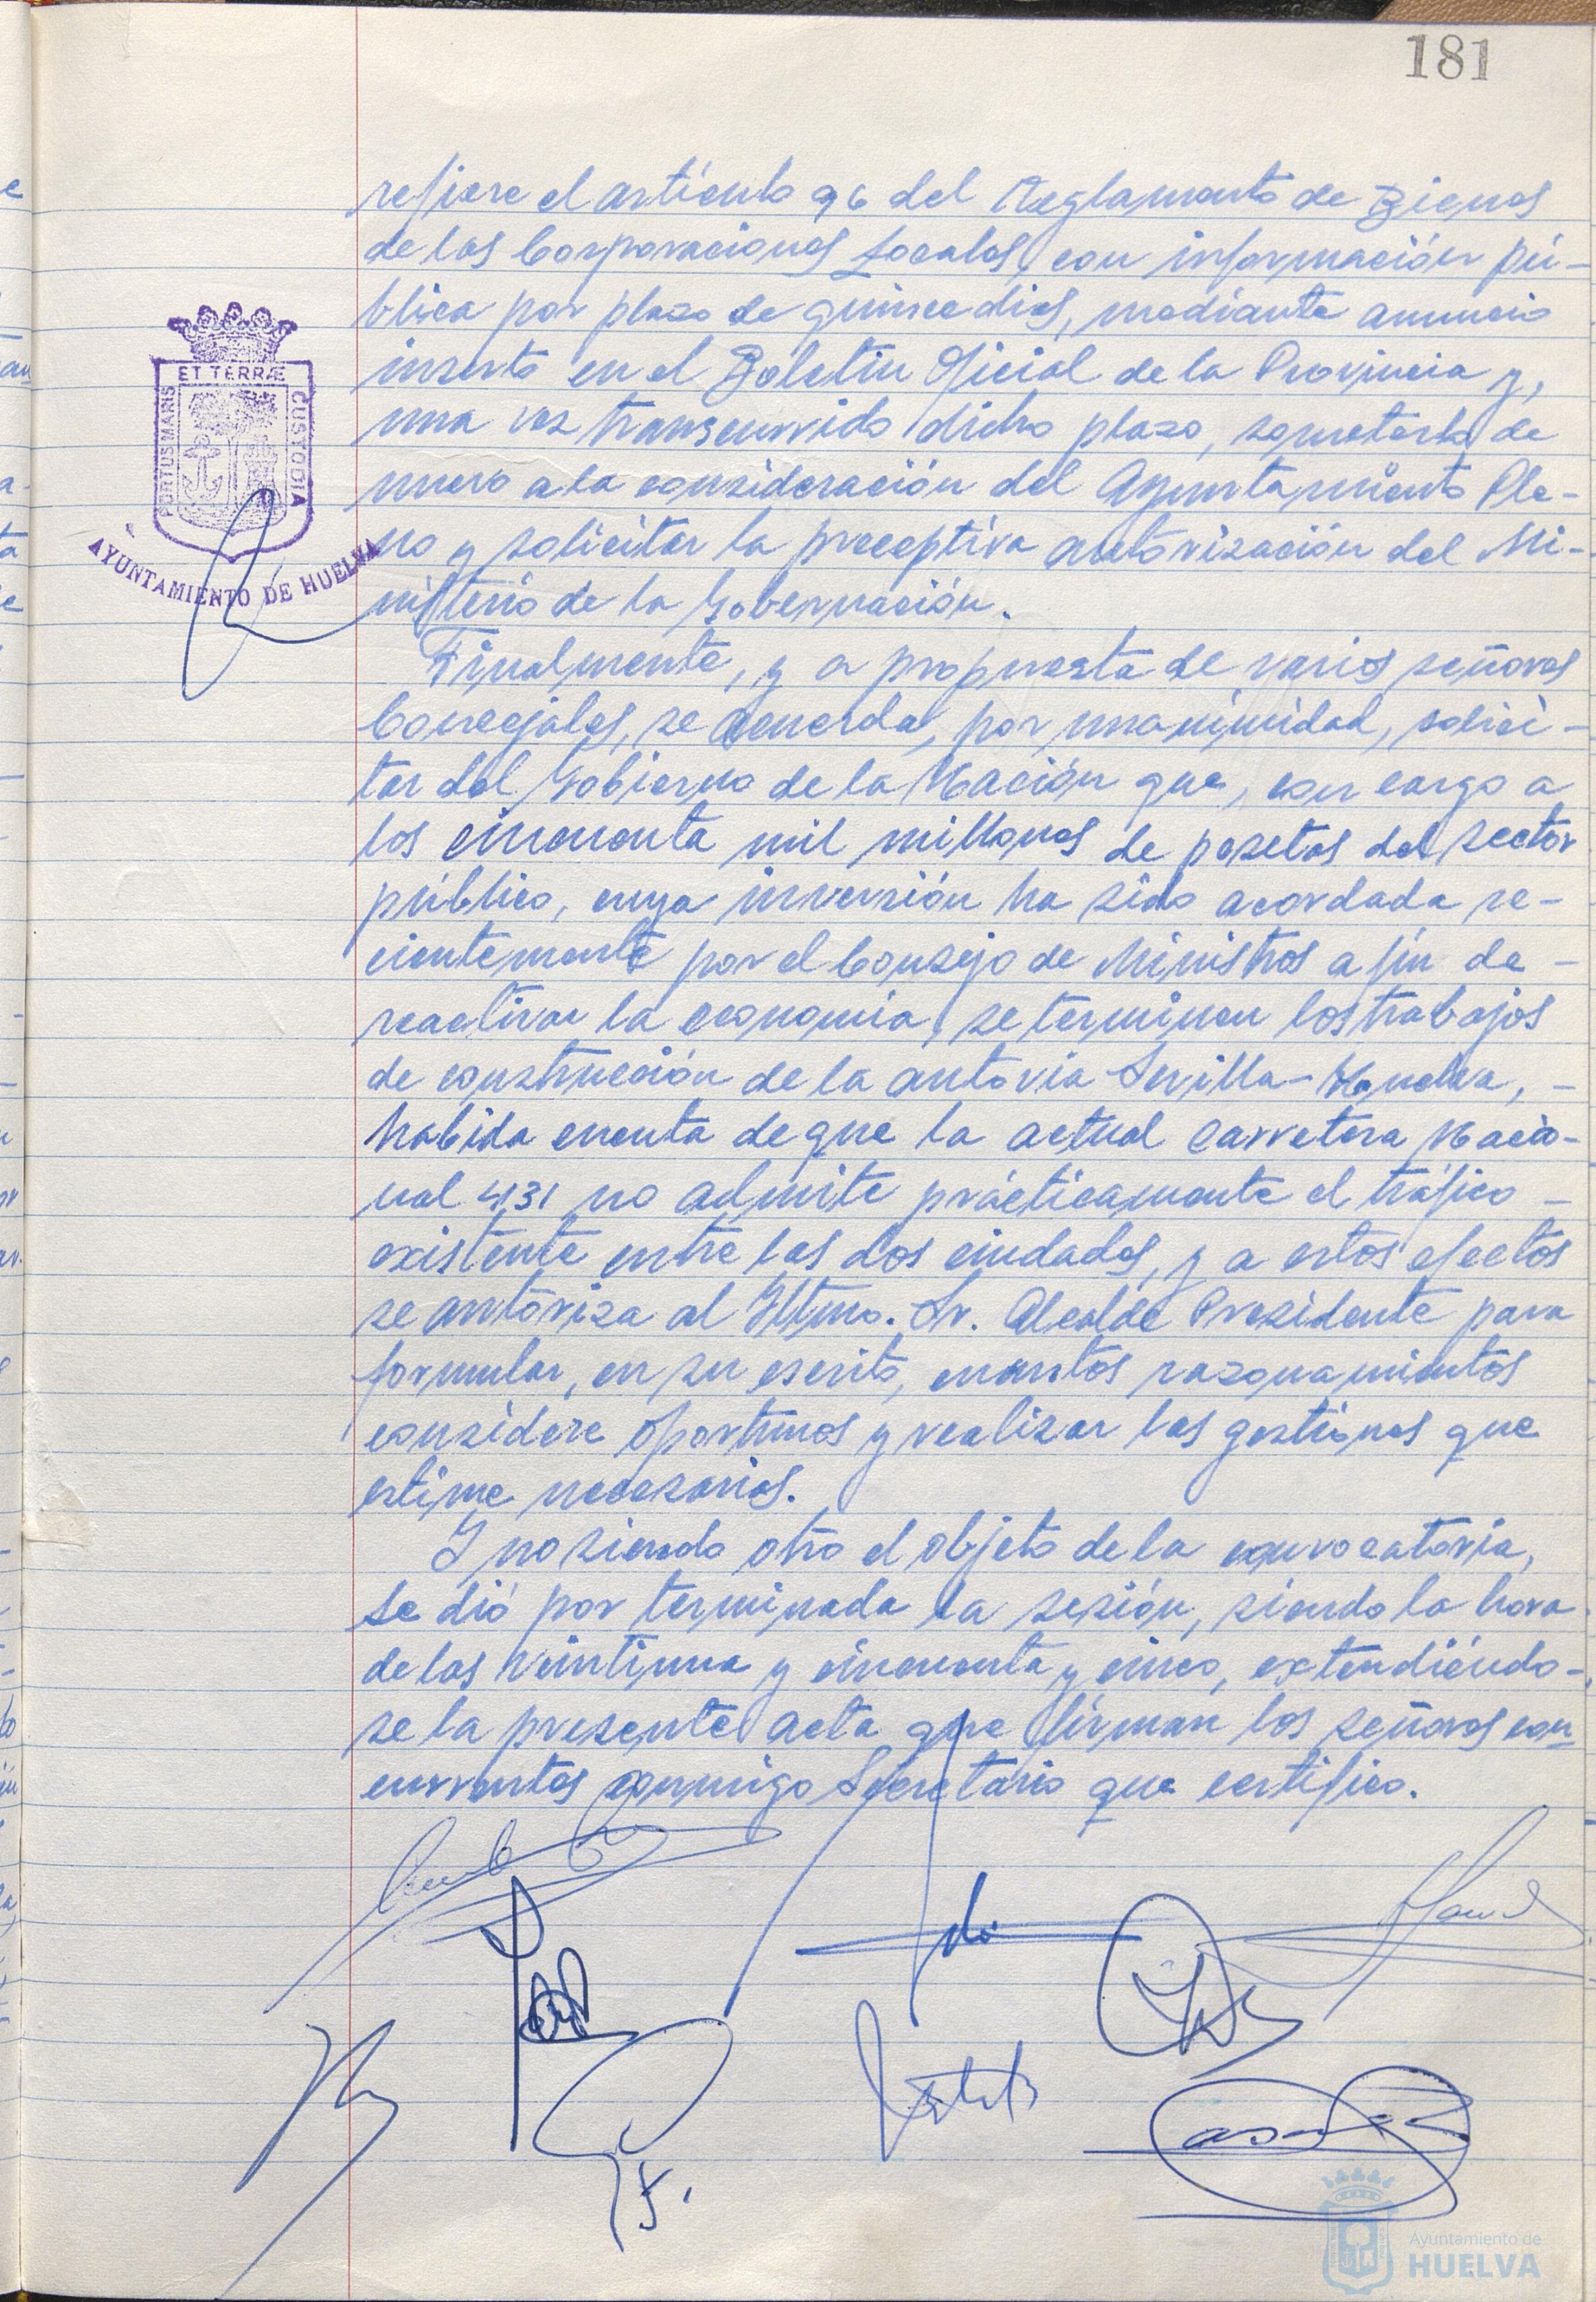 181
refiere el artículo 96 del Reglamento de Bienes
de las Corporaciones Locales, con información pú-
blica por plazo de quince dias, mediante anuncio
inserto en el Boletin Oficial de la Provincia y,
una vez transcurrido dicho plazo, someterlo de
nuevo a la consideración del Ayuntamiento Ple-
no y solicitar la preceptiva autorización del Mi-
nisterio de la Gobernación.
Finalmente, y a propuesta de varios señores
Concejales, se acuerda, por unanimidad, solici-
tar del Gobierno de la Nación que, con cargo a
los cincuenta mil millones de pesetas del sector
público, cuya inversión ha sido acordada re-
cientemente por el Consejo de Ministros a fin de -
reactivar la economia, se terminen los trabajos
de construcción de la autovia Sevilla-Huelva, -
habida cuenta de que la actual carretera Nacio-
nal 431 no admite prácticamente el tráfico -
existente entre las dos ciudades, y a estos efectos
se autoriza al Iltmo. Sr. Alcalde Presidente para
formular, en su escrito, cuantos razonamientos
considere oportunos y realizar las gestiones que
estime necesarias.
Y no siendo otro el objeto de la convocatoria,
se dió por terminada la sesión, siendo la hora
de las veintiuna y cincuenta y cinco, extendiéndo-
se la presente acta que firman los señores con-
currentes conmigo Secretario que certifico.
PORTUS MARIS
ET TERRÆ
CUSTODIA
AYUNTAMIENTO DE HUELVA
Ayuntamiento de
HUELVA